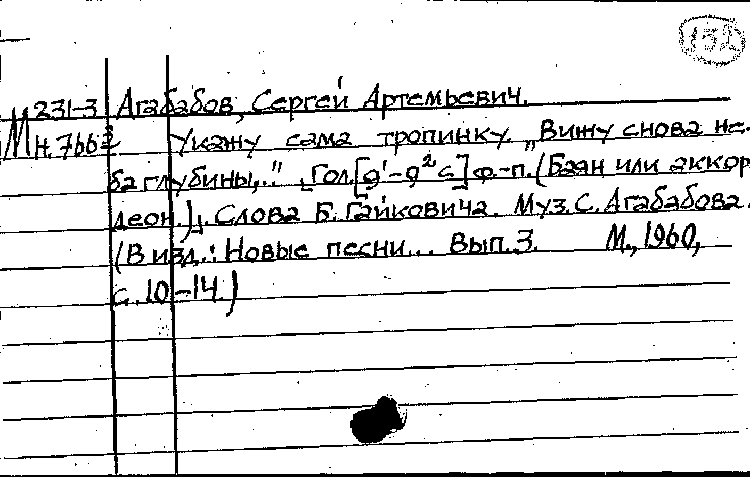 151
231-3 Агабабов, Сергей Артемьевич.
М н.766² Укажу сама тропинку. „Вижу снова не-
ба глубины,.." [Гол.[g¹-g² c] ф.-п.(Баян или аккор-
деон.)]. Слова Б. Гайковича. Муз. С. Агабабова.
(В изд.: Новые песни... Вып. 3. М., 1960,
с. 10-14.)